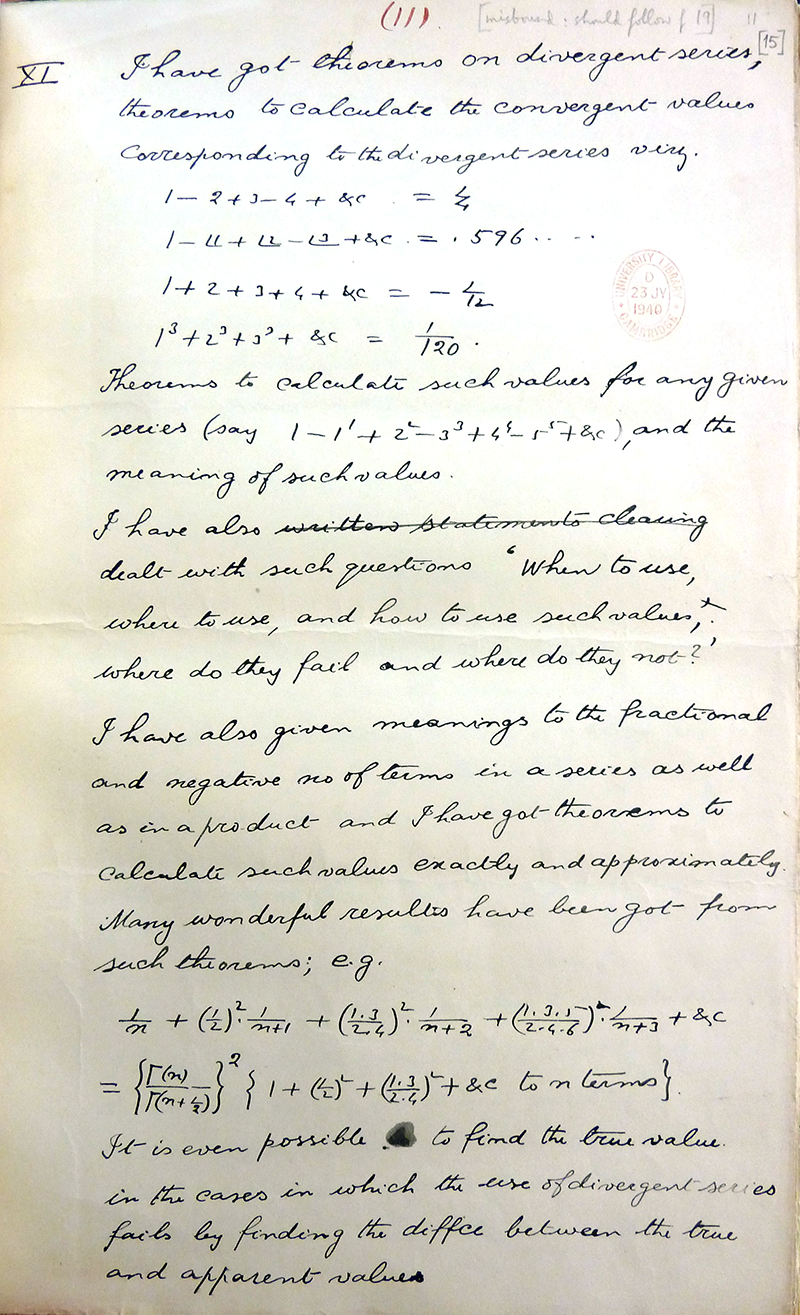 (11) [misbound: should follow f 19] 11
[15]
XI I have got theorems on divergent series,
theorems to calculate the convergent values
corresponding to the divergent series viz.
1 – 2 + 3 – 4 + &c = 1/4
1 – |1 + |2 – |3 + &c = ·596.. ..
1 + 2 + 3 + 4 + &c = – 1/12
1³ + 2³ + 3³ + &c = 1/120.
UNIVERSITY LIBRARY
D
23 JY
1940
CAMBRIDGE
Theorems to calculate such values for any given
series (say 1 – 1¹ + 2² – 3³ + 4⁴ – 5⁵ + &c), and the
meaning of such values.
I have also written statements clearing
dealt with such questions ‘When to use,
where to use, and how to use such values,
where do they fail and where do they not?’
I have also given meanings to the fractional
and negative no of terms in a series as well
as in a product and I have got theorems to
calculate such values exactly and approximately.
Many wonderful results have been got from
such theorems; e.g.
1/n + (1/2)²· 1/(n+1) + (1·3/2·4)²· 1/(n+2) + (1·3·5/2·4·6)²· 1/(n+3) + &c
= {Γ(n)/Γ(n+1/2)}² {1 + (1/2)² + (1·3/2·4)² + &c to n terms}.
It is even possible to find the true value
in the cases in which the use of divergent series
fails by finding the diffce between the true
and apparent values